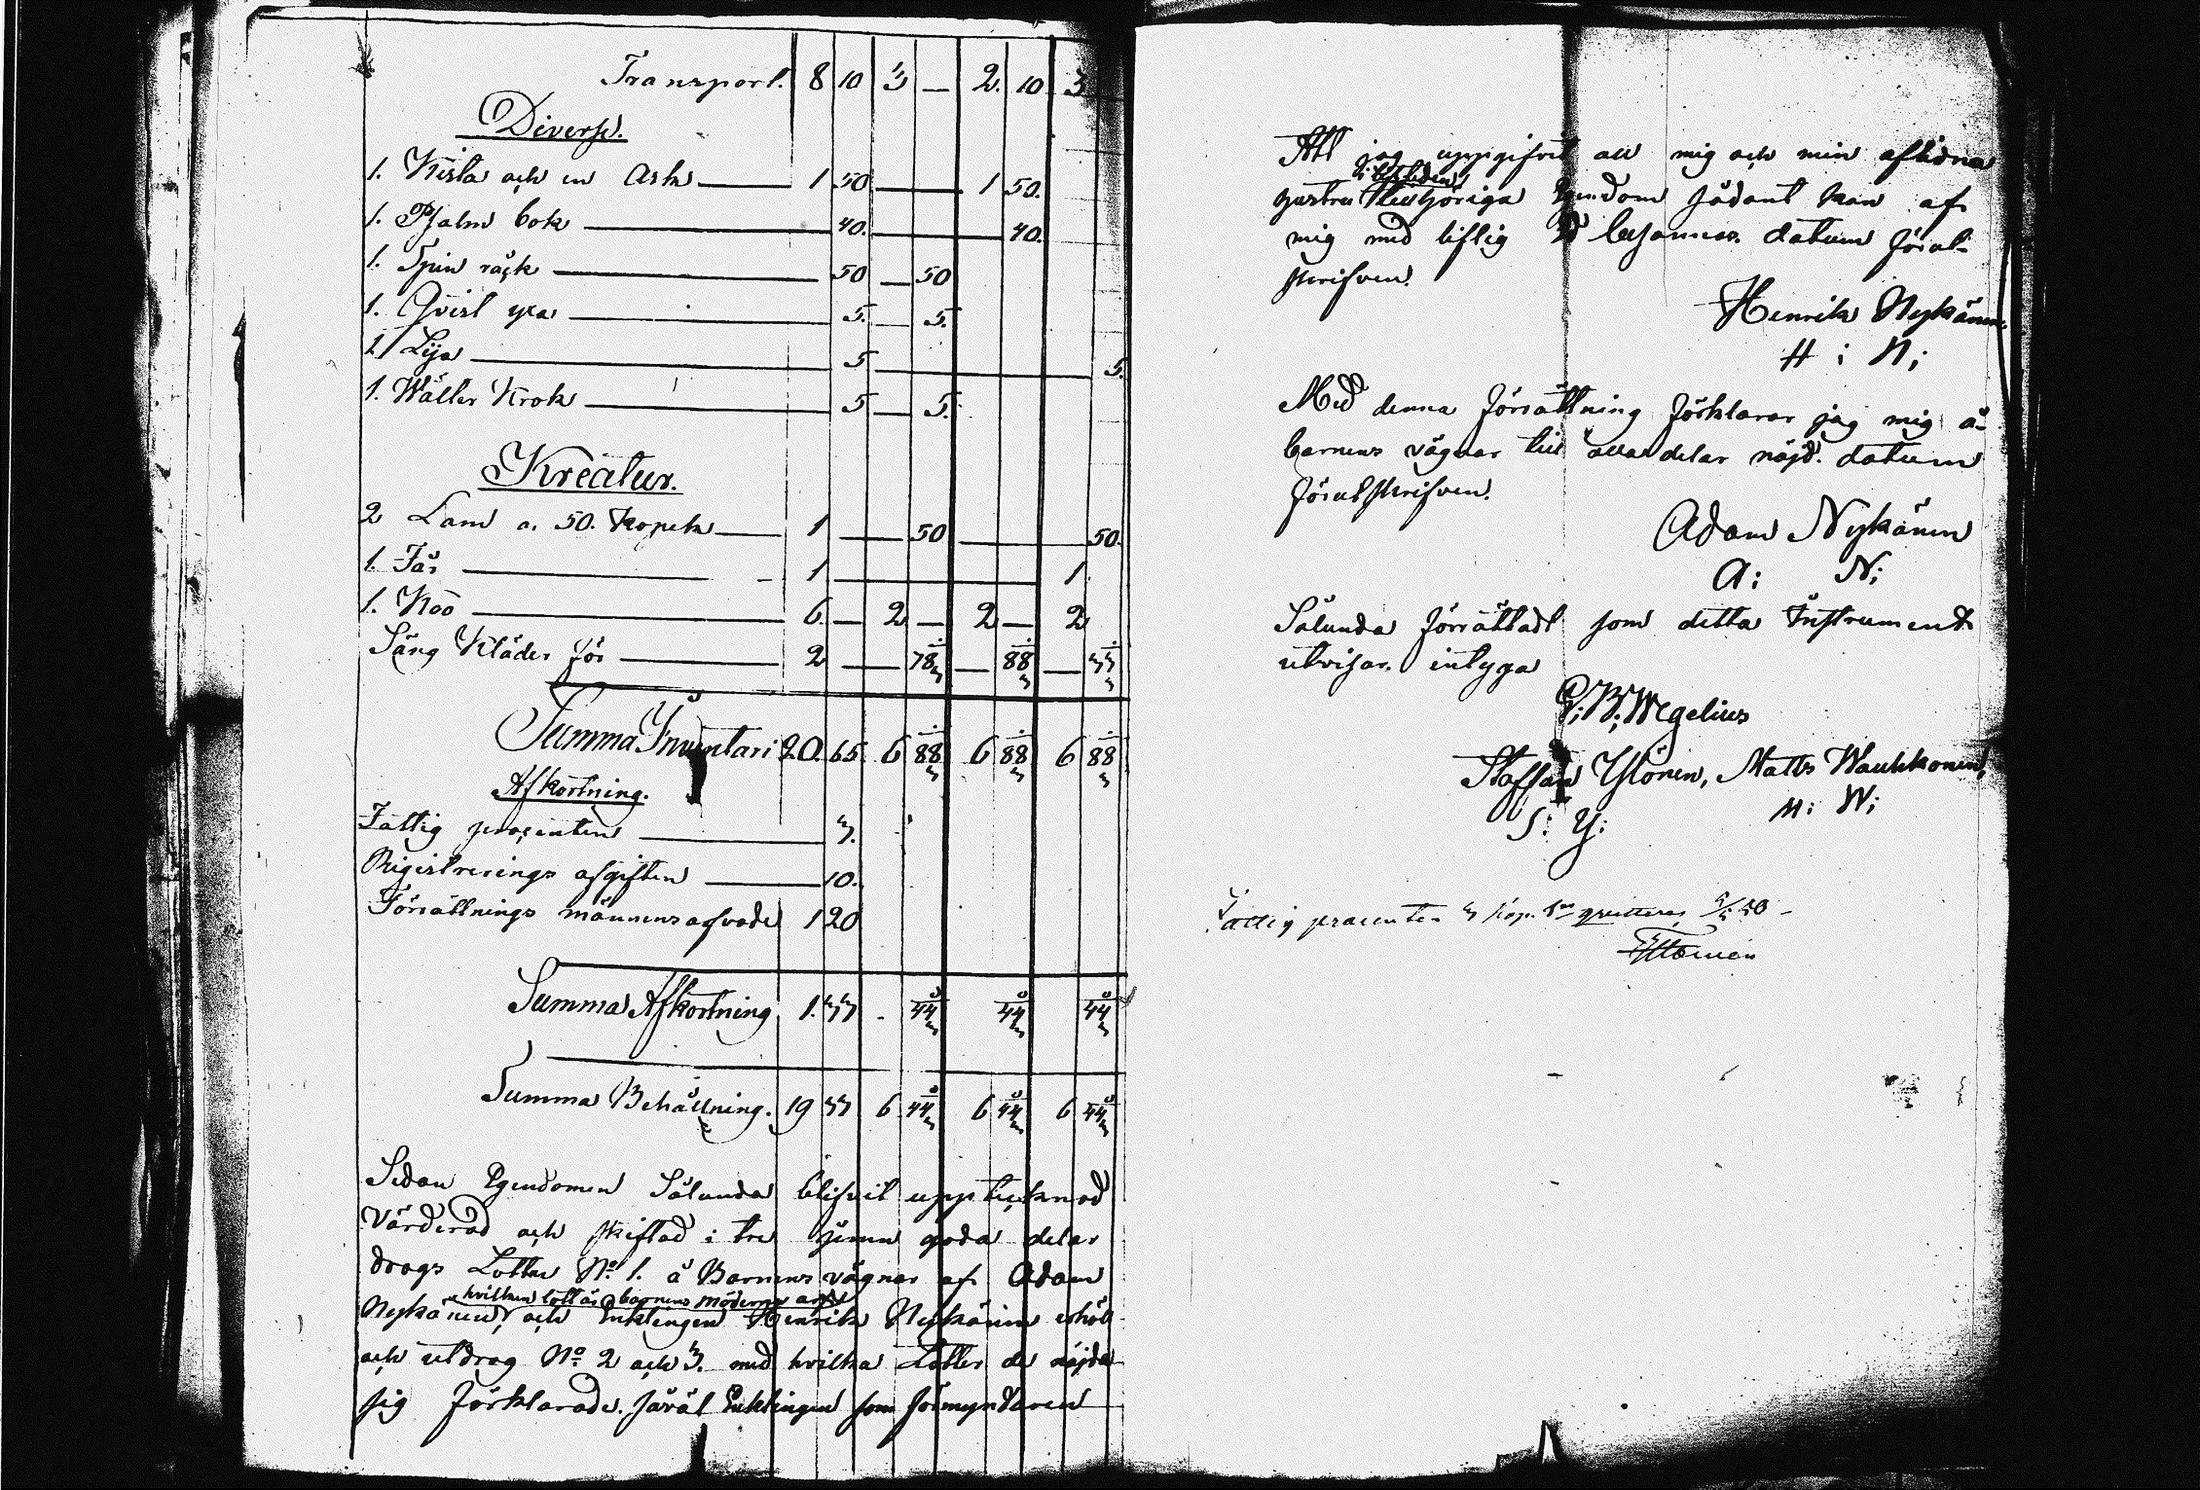 Transport. 8 10 3 — 2. 10 3
Diverse.
1. Kista och en Ask 1 50 1 50.
1. Psalm bok 40. 40.
1. Spin råck 50 50
1. Qvist yxa 5. 5.
1. Lija 5 5.
1. Wäller Krok 5 5.
Kreatur.
2 Lam a. 50. Kopek 1 50 50.
1. Får 1 1
1. Koo 6. 2 — 2 — 2
Säng Kläder för 2 78 88
Summa Inventari 20. 65 6 88 6 88 6 88
Afkortning.
Fattig procenten 3.
Rigistrerings afgiften 10.
Förrättnings männens arfvode 1 20
Summa Afkortning 1. 33 44 44 44
Summa Behållning. 19 33 6 44 6 44 6 44
Sedan Egendomen Sålunda blifvit uppteknad
Värderad och skiftad i tre jemn goda delar
drogs Lotten No. 1. å Barnens vägnar af Adam
hvilken lott är barnens möderne arf
Nykänen, och Enklingen Henrik Nykänen erhöll
och utdrog No. 2 och 3. med hvilka Lotter de nöjda
sig förklarade. såväl Enklingen som förmyndaren
Att jag uppgifvit all mig och min aflidna
hustru tillhöriga Egendom sådant kan af
mig med liflig Ed besannas. datum förut-
skrifven.
Henrik Nykänen
H: N:
Med denna förrättning förklarar jag mig å
barnens vägnar till alla delar nöjd. datum
förutskrifven.
Adam Nykänen
A: N:
Sålunda förrättadt som detta Instrument
utvisar. intyga
Wegelius
Staffan Ylönen, Matts Wauhkonen,
S: Y: M: W:
Fattig procenten 3 kop. Sr qvitteras